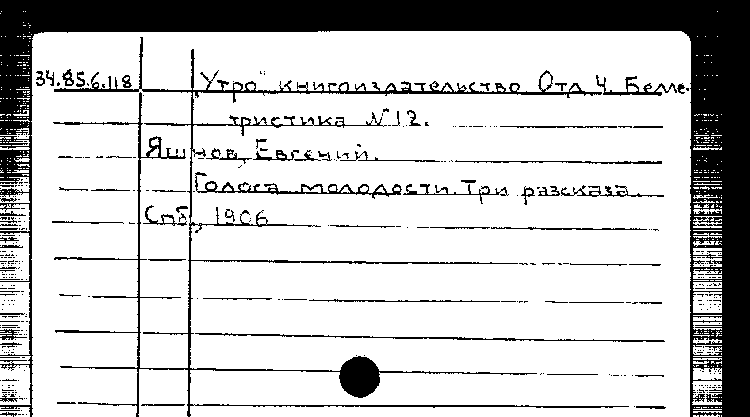 34.85.6.118 „Утро" книгоиздательство Отд 4. Белле-
тристика № 12.
Яшнов, Евгений.
Голоса молодости. Три разсказа.
Спб., 1906